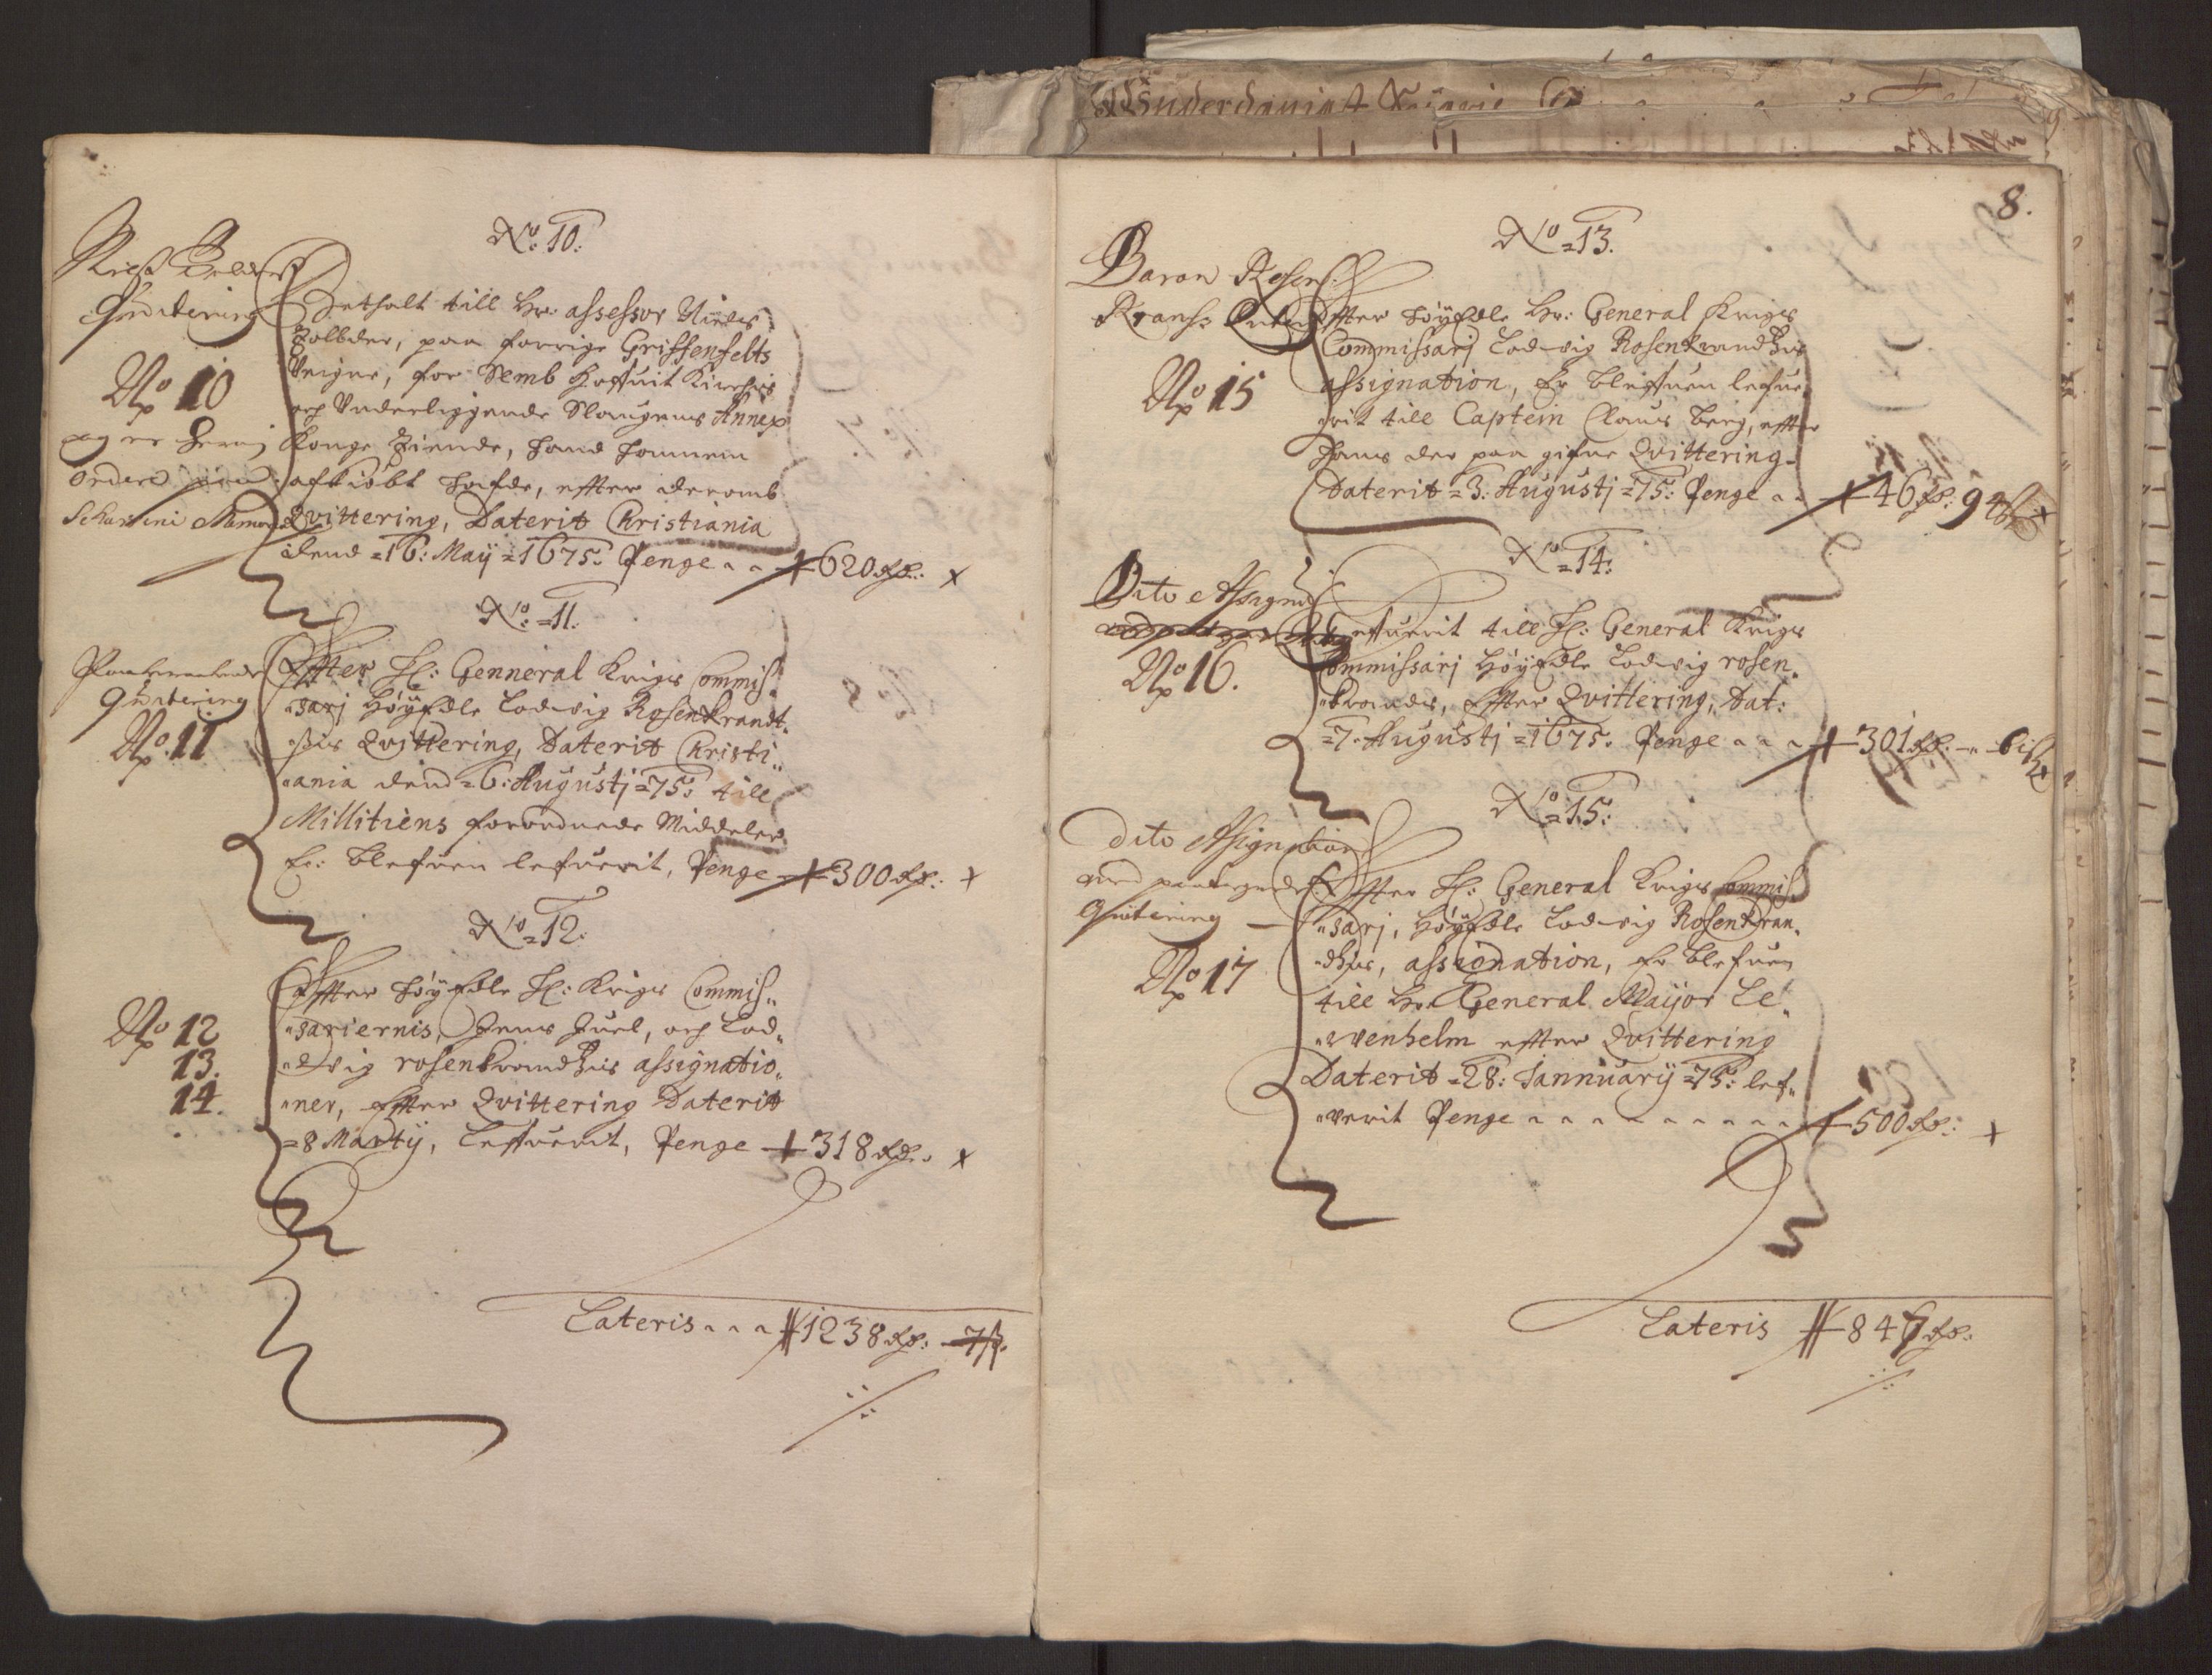 N.o 10:
Niels
Quitering
Bethalt till Hr: assessor Niels
Tolder, paa forrige Griffenfelts
Veigne, for Semb Hoffuit Kirches
No 10
och Underliggende Slaugens Annex
Konge Tiende, Hand hannem
ordere
afkiøbt hafde, effter deromb
Qvittering, Daterit Christiania
dend =16: Maij =1675: Penge - - 620 rdr: x
N.o =11:
Quitering
No. 11
Effter H: Genneral Krigs Commis„
„sarj HøyEdle Lodvig Rosenkrandt„
„zis Qvittering, Daterit Christi„
„ania dend =6: Augustj =75: till
Millitiens forordnede Middeler
Er: blefuen lefuerit, Penge - 300 rdr: x
N.o =12:
No 12
13.
14.
Effter HøyEdle H: Krigs Commis„
„sariernis, Jens Juel, och Lod„
„dvig rosenkrandzis assignatio„
„ner, Effter Qvittering Daterit
=8 Martij, Leffuerit, Penge 318 rdr. x
Lateris - - - 1238 rdr: 7ß.
8.
N.o =13.
Baron Rosen
Krans
No 15
Effter HøyEdle Hr: General Krigs
Commissarj Lodvig Rosenkrandzis
assignation, Er bleffuen lefue„
„rit till Captein Claus Berg, effter
Hans der paa gifne Qvittering
Daterit =3: Augustj =75: Penge - - 46 rdr: 9 ß x
N.o =14:
Dito Assign
No 16.
Leffuerit till H: General Krigs
Commissarj HøyEdle Lodvig rosen„
„krandz, Effter Qvittering, Dat:
=7. Augustj =1675. Penge - - - 301 rdr: - 6 ß x
N.o =15:
Dito Assignation
med paategnede
Quitering
No 17
Effter H: General Krigs Commis„
„sarj, HøyEdle Lodvig Rosenkran„
„dzis, assignation, Er blefuen
till Hr: General Maijor Le„
„wenhelm effter Qvittering
Daterit =28: Jannuarij =75: lef„
„verit Penge - - - - - - - - - 500 rdr: x
Lateris 847 rdr: